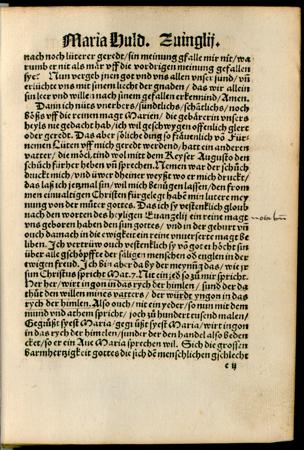 Maria Huld. Zuinglij.
nach noch lüterer geredt / sin meinung gfalle mir nit / wa
rumb er nit als mär vff die vordrigen meinung gefallen
sye? Nun vergeb jnen got vnd vns allen vnser sund / vñ
erlücht vns mit sinem liecht der gnaden / das wir allein
sin leer vnd wille nach sinem gefallen erkennind / Amen.
Dann ich nüts vnerbers / sundtlichs / schätlichs / noch
bößs vff die reinen magt Marien / die gebärerin vnsers
heyls nie gedacht hab / ich wil geschwygen offenlich glert
oder geredt. Das aber sölichs ding so fräuenlich vō Für-
nemen Lüten vff mich geredt werdend / hatt ein anderen
vatter / die möcktind wol mit dem Keyser Augusto den
schüch fürher heben vñ sprechen. Nemen war der schüch
druckt mich / vnd ü wer dheiner weyßt wo er mich druckt /
das laß ich jetzmal sin / wil mich benügen lassen / den from
men einualtigen Christen fürgelegt habē min luterer mey
nung von der mütter gottes. Das ich sy vestenklich gloub
nach den worten des heyligen Euangelij ein reine magt
vns geboren haben den sun gottes / vnd in der geburt vñ
ouch darnach in die ewigkeit ein reine vnuerserte magt be
liben. Ich vertrüw ouch vestenklich sy vō got er höcht sin
über alle gschöpfft der säligen menschen od englen in der
ewigen freud. Ich bin aber da by der meynūg das / wie jr
sun Christus spricht Mat. 7. Nit ein jed so zü mir spricht
Her her / wirt ingon in das rych der himlen / sund der da
thüt den willen mines vatters / der würdt yngon in das
rych der himlen. Also ouch / nit ein yeder / so nun mit dem
mund vnd athem spricht / joch zü hundert tusend malen /
Gegrüßt syest Maria / gegrüßt syest Maria / wirt ingon
in das rych der himelen / sunder der den handel also beden
cket / so er ein Aue Maria sprechen wil. Sich die grossen
barmhertzigkeit gottes die sich dē menschlichen gschlecht
c ij